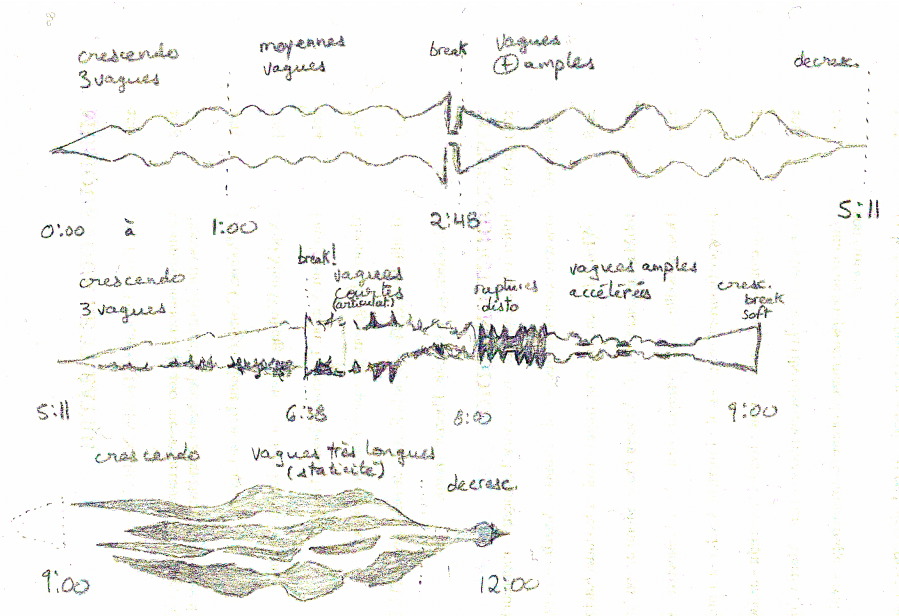 crescendo
3 vagues
moyennes
vagues
break
vagues
⊕ amples
decresc.
0:00 à 1:00
2:48
5:11
crescendo
3 vagues
break!
vagues
courtes
(articulat.)
ruptures
disto
vagues amples
accélérées
cresc.
break
soft
5:11
6:38
8:00
9:00
crescendo
vagues très longues
(staticité)
decresc.
9:00
12:00